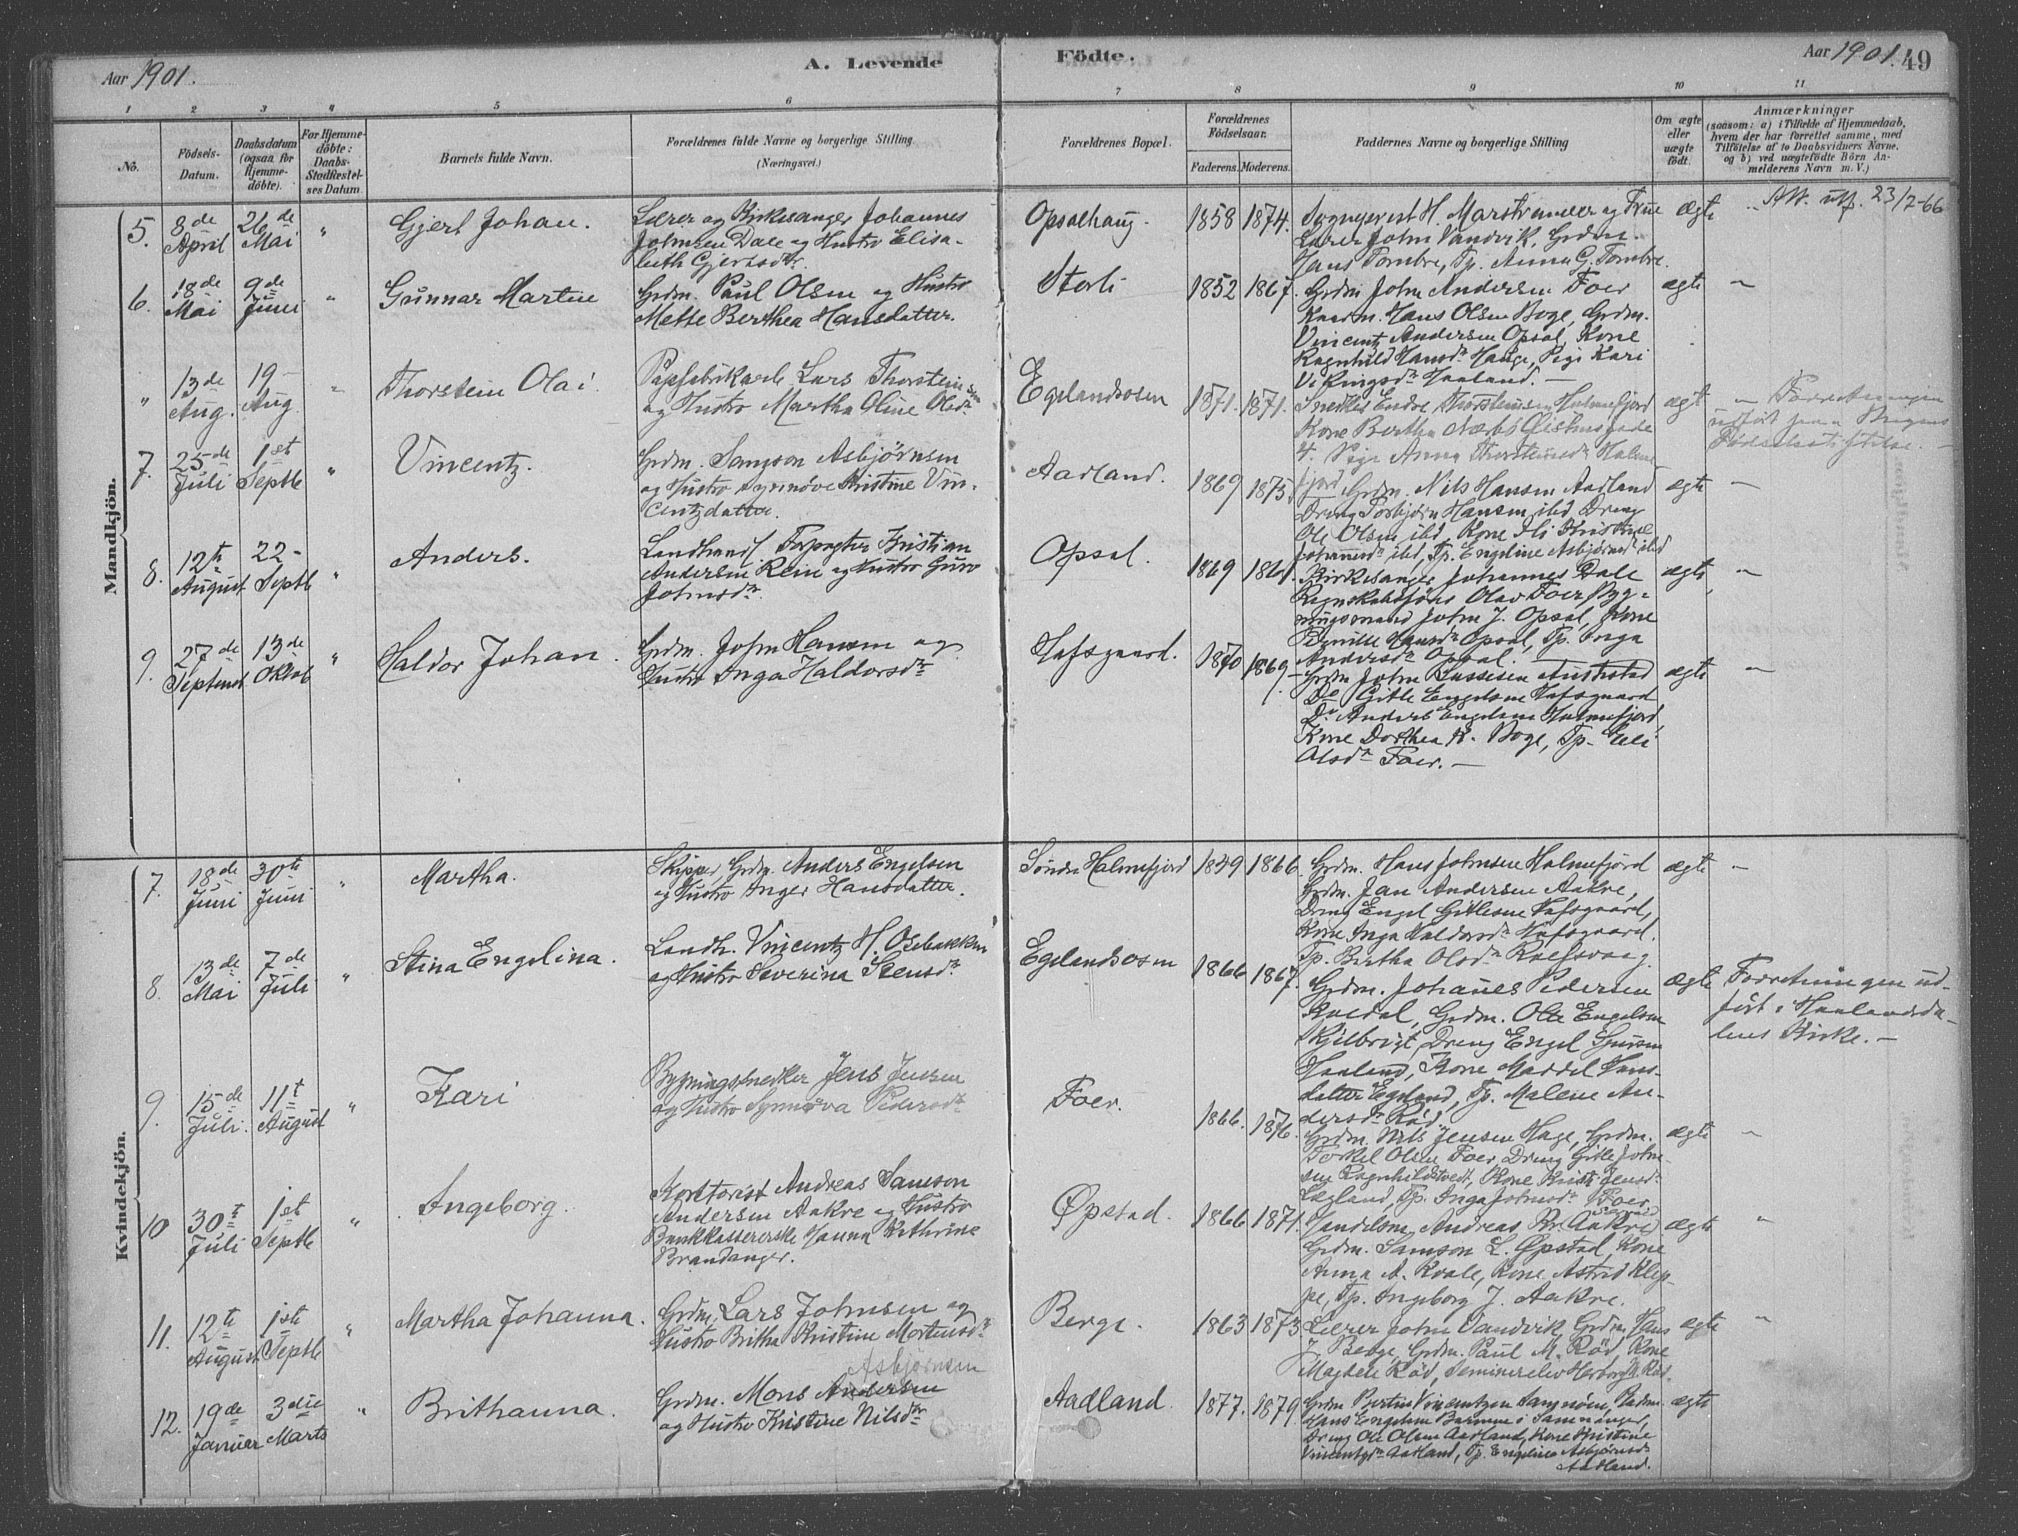 Aar 1901.
A. Levende
Födte.
Aar 1901. 49
1 2 3 4 5 6 7 8 9 10 11
No.
Födsels-Datum.
Daabsdatum (ogsaa for Hjemme-döbte).
For Hjemme-döbte: Daabs-Stadfæstel-ses Datum.
Barnets fulde Navn.
Forældrenes fulde Navne og borgerlige Stilling (Næringsvei.)
Forældrenes Bopæl.
Forældrenes Födselsaar.
Faderens. Moderens.
Faddernes Navne og borgerlige Stilling
Om ægte eller uægte födt.
Anmærkninger
(saasom: a) i Tilfælde af Hjemmedaab, hvem der har forrettet samme, med Tilföielse af to Daabsvidners Navne, og b) ved uægtefödte Börn An-melderens Navn m. V.)
Mandkjön.
5. 8de April 26de Mai " Gjert Johan.
Lærer og Kirkesanger Johannes
Johnsen Dale og Hustro Elisa-
beth Gjertsdtr.
Opsalhaug. 1858 1874.
Sogneprest H. Marstrander og Frue
Lærer John Vandvik, Grdm.
Hans Tombre, Tp. Anna G. Tombre.
ægte
Att. utf. 23/2-66
6. 18de Mai 9de Juni " Gunnar Martin
Grdm. Paul Olsen og Hustro
Mette Berthea Hansdatter.
Storli 1852 1867.
Grdm John Andersen Foer
Hans Olsen Boge, Grdm.
Vincentz Andersen Opsal, Kone
Ragnhild Hansdr Hauge, Pige Kari
Vikingsdr Haaland. —
ægte —
" 13de Aug. 19 — Aug. " Thorstein Olai.
Papfabrikarb. Lars Thorsteinsen
og Hustro Martha Oline Olsdr
Egelandsosen 1871. 1871.
Snedker Endre Thorsteinsen Holmefjord
Kone Bertha
4. Pige Anna Thorsteinsdr Holme-
fjord
ægte
— Forretningen
udført paa Bergens
Fødselsstiftelse. —
7. 25de Juli 1st Septb " Vincentz.
Grdm. Samson Asbjørnsen
og Hustro Synnøve Kristine Vin-
centzdatter.
Aadland. 1869 1875.
Grdm. Nils Hansen Aadland
Dreng Torbjørn Hansen ibd, Dreng
Ole Olsen ibd, Kone Kristine
Johannesdr ibd, Tp. Engeline Asbjørnsdr ibd
ægte —
8. 12th August 22 - Septb " Anders.
Landhandl. Forpagter Kristian
Andersen Rein og Hustro Guro
Johnsdr.
Opsal. 1869 1861.
Kirkesanger Johannes Dale
Regnskabsfører Olav Foer, Byg-
ningsmand John J. Opsal, Kone
Brynille Hansdr Opsal, Tp. Inga
Andersdr Opsal.
ægte —
9. 27de Septemb 13de Oktob " Haldor Johan.
Grdm. John Hansen og
Hustro Inga Haldorsdr
Hafsgaard. 1870 1869.
Grdm John Lassesen
Do Gitle Engelsen Hafsgaard
Do Anders Engelsen Holmefjord,
Kone Dorthea K. Boge, Tp. Eli
Olsdr Foer. —
ægte —
Kvindekjön.
7. 18de Juni 30te Juni " Martha.
Skipper, Grdm. Anders Engelsen
og Hustro Inger Hansdatter.
Søndre Holmefjord 1849 1866.
Grdm. Hans Johnsen Holmefjord
Grdm. Jan Andersen Aakre,
Dreng Engel Gitlesen Hafsgaard,
Kone Inga Haldorsdr Hafsgaard.
Tp. Bertha Olsdr Rolfsvaag.
ægte —
8. 13de Mai 7de Juli " Stina Engelina.
Landh. Vincentz H. Osebakken
og Hustro Severina Stensdr
Egelandsosen 1866 1867.
Grdm. Johanes Pedersen
Rødal, Grdm. Ole Engelsen
Kjilbrigt, Dreng Engel Sjursen
Haaland, Kone Maddel Hans-
datter Egeland, Tp. Malene An-
dersdr Rød.
ægte
Forretningen ud-
ført i Haalandsda-
lens Kirke. —
9. 15de Juli. 11t August " Kari
Bygningssnedker Jens Jensen
og Hustro Synneva Pedersdr
Foer. 1866. 1876.
Grdm. Nils Jensen Hage, Grdm.
Torkel Olsen Foer, Dreng Gitle John-
sen Ragnhildstvedt, Kone Kristi Jensdr
Lægland, Tp. Inga Johnsdr Foer
ægte —
10 30t Juli 1st Septb " Ingeborg.
Kontorist Andreas Samson
Andersen Aakre og Hustro
Bankkassererske Hanna Kathrine
Brandanger.
Øpstad. 1866 1871.
Handelsm. Andreas Kr. Aakre
Grdm. Samson L. Øpstad, Kone
Anna A. Kvale, Kone Astrid Klep-
pe, Tp. Ingeborg J. Aakre.
ægte "
11. 12th August 1ste Septb " Martha Johanna.
Grdm. Lars Johnsen og
Hustro Britha Kristine Mortensdr
Berge. 1863 1873
Lærer John Vandvik, Grdm. Hans
J. Berge, Grdm. Paul M. Rød, Kone
Magtele Rød, Seminarelev Herborg N. Rød.
ægte "
12. 19de Januar 3die Marts " Brithanna.
Asbjørnsen
Grdm. Mons Andersen
og Hustro Kristine Nilsdtr
Aadland. 1877. 1879
Grdm Bertin Vincentzen Samnøen, Baadm.
Hans Engelsen Barmen i Samnanger,
Dreng Ole Olsen Aadland, Kone Kristine
Vincentzdr Aadland, Tp. Engeline Asbjørnsdr
Aadland.
ægte